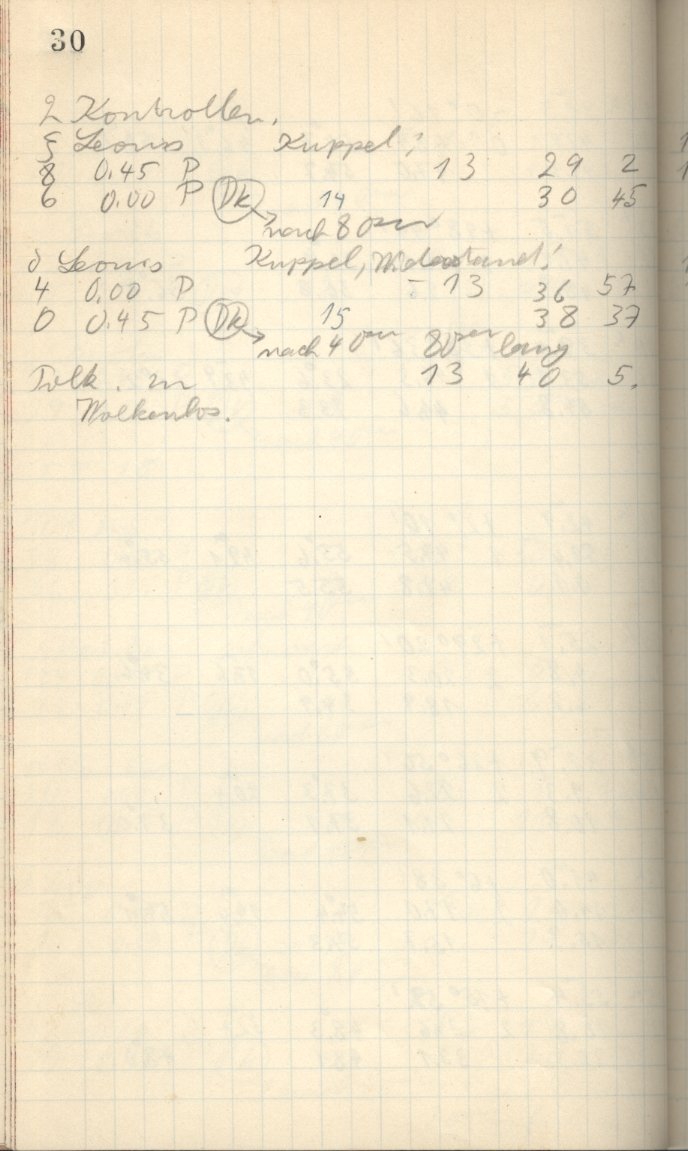 30
2 Kontrollen.
ξ Leonis Kuppel!
8 0.45 P 13 29 2
6 0.00 P Dk 14 30 45
nach 80
δ Leonis Kuppel, Widerstand!
4 0.00 P - 13 36 57
0 0.45 P Dk 15 38 37
nach 40 80 lang
13 40 5.
Wolkenlos.